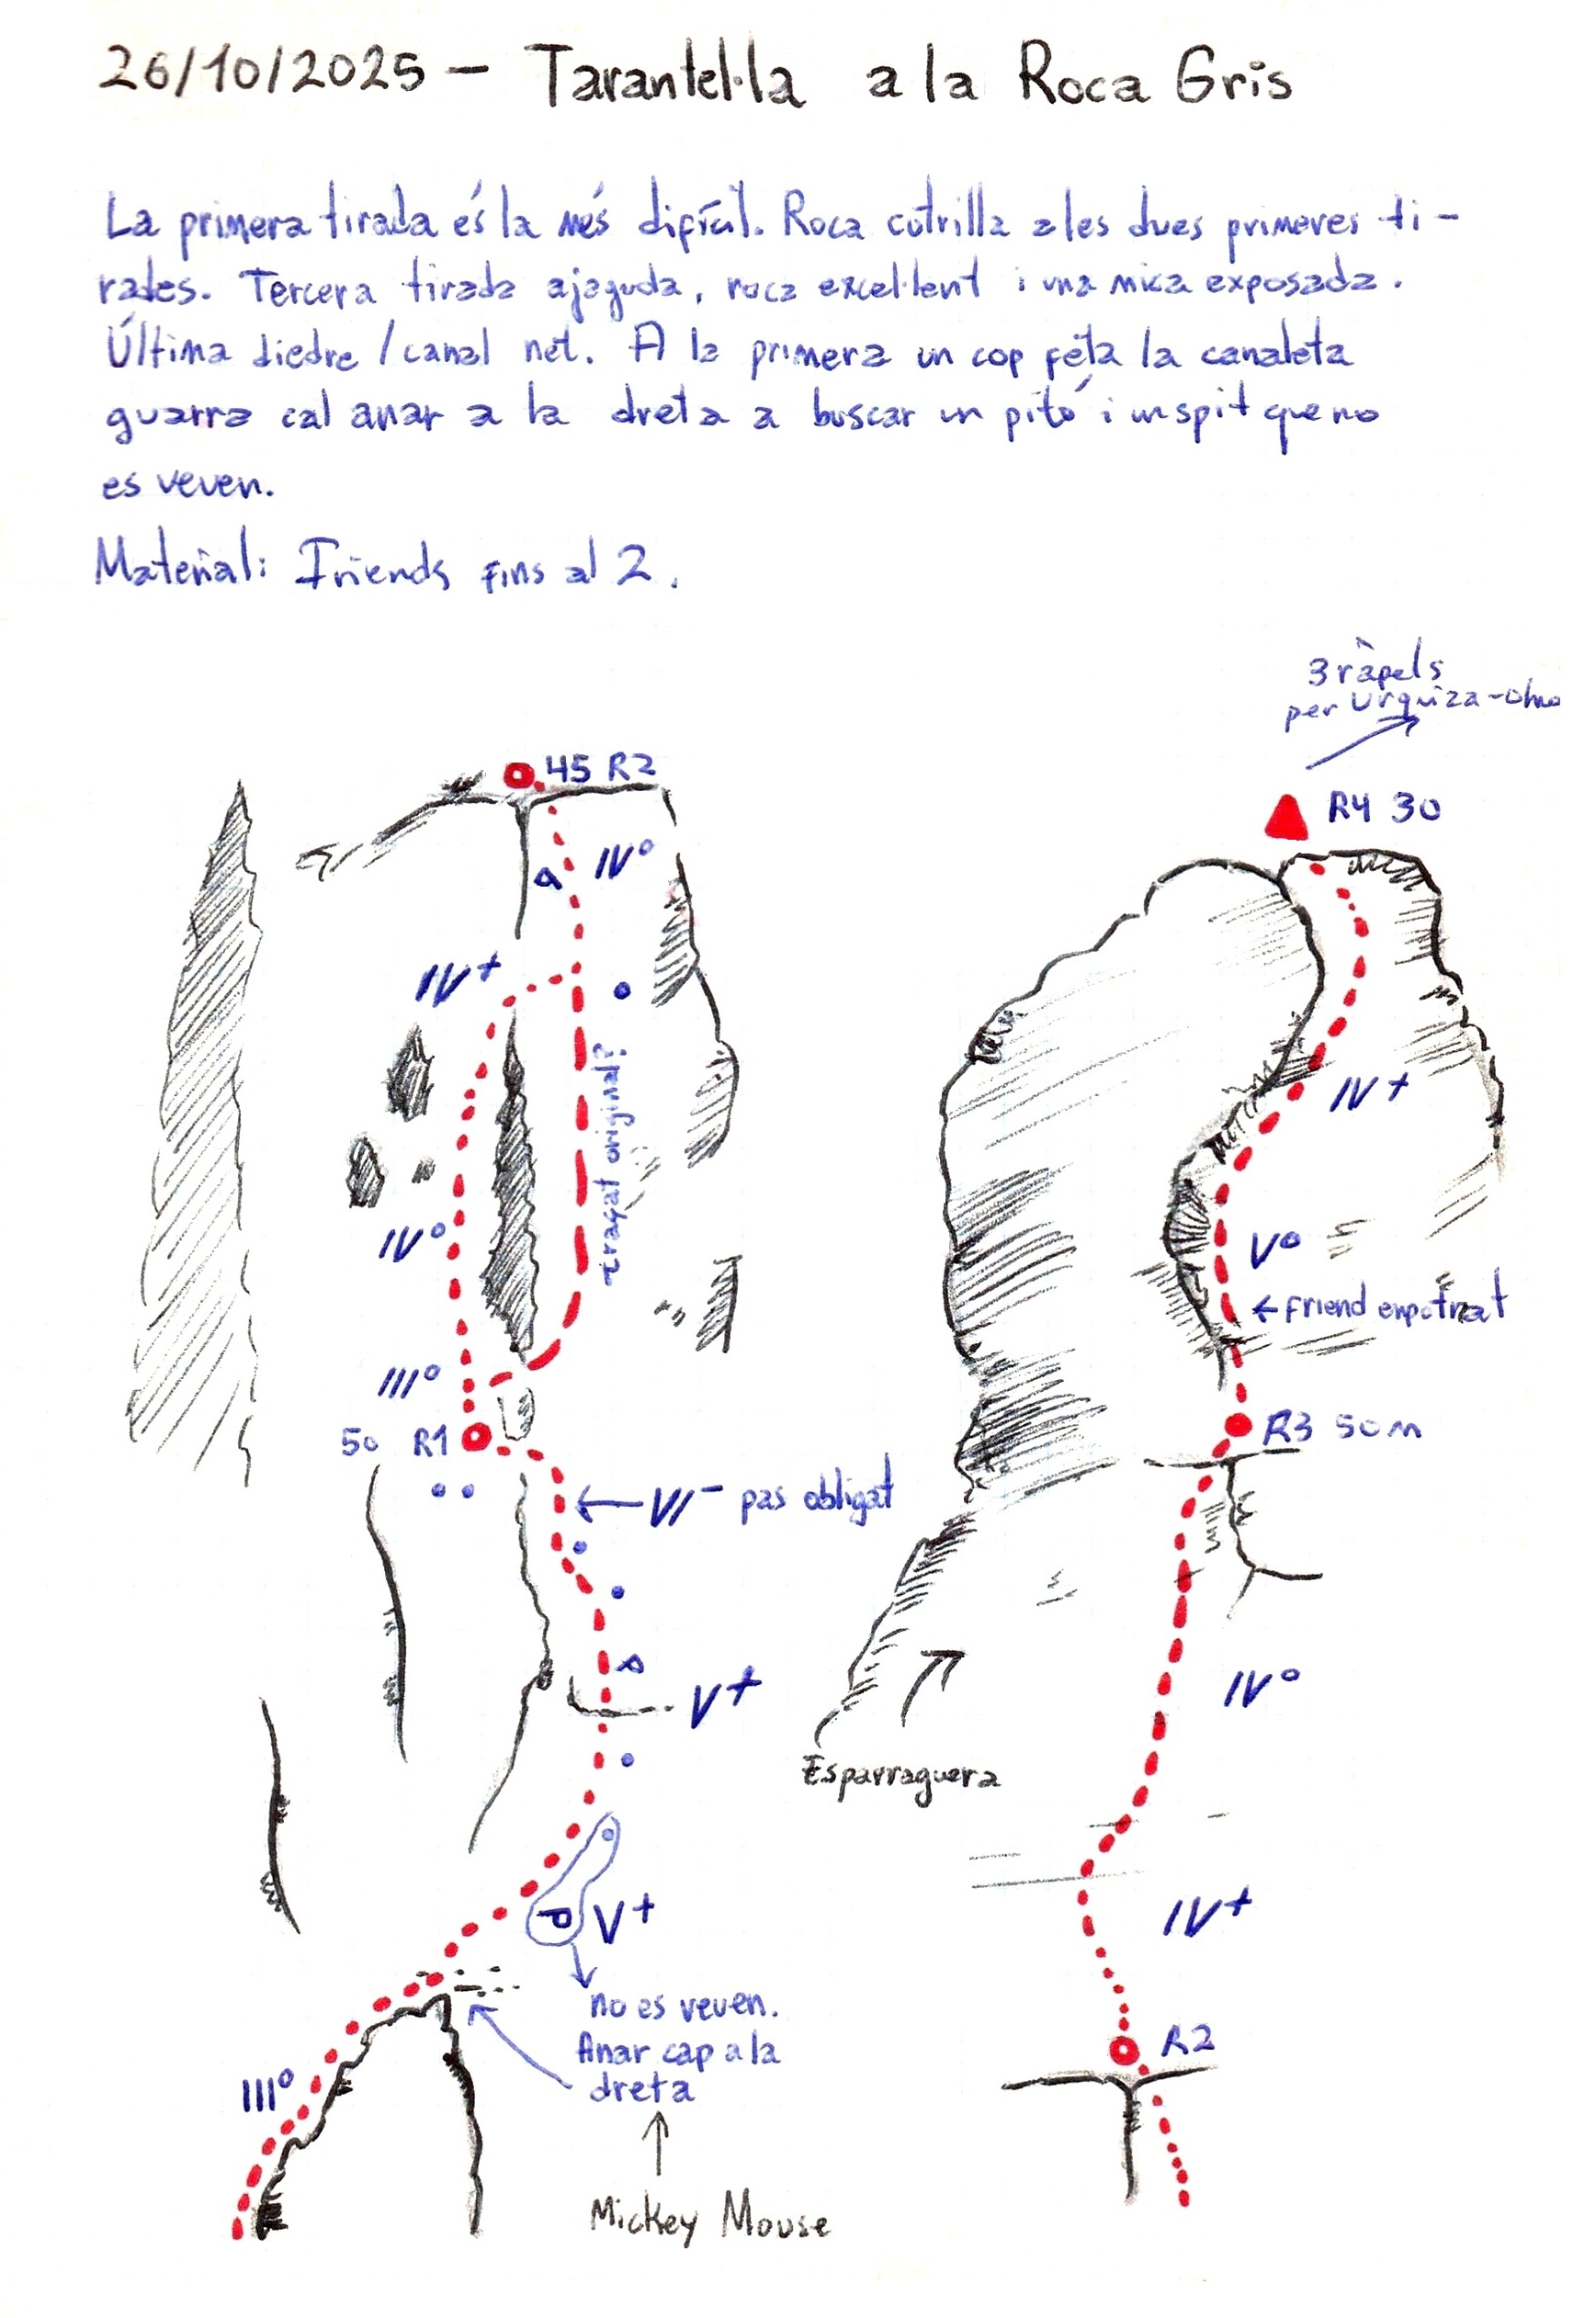 26/10/2025 - Tarantel·la a la Roca Gris
La primera tirada és la més difícil. Roca cutrilla a les dues primeres ti-
rades. Tercera tirada ajaguda, roca excel·lent i una mica exposada.
Última diedre / canal net. A la primera un cop feta la canaleta
guarra cal anar a la dreta a buscar un pitó i un spit que no
es veuen.
Material: Friends fins al 2.
3 ràpels
per Urquiza-Olmo
45 R2
R4 30
IV°
IV+
traçat original?
IV+
IV°
V°
← Friend empotrat
III°
50 R1
R3 50m
← VI- pas obligat
V+
IV°
Esparraguera
P V+
IV+
no es veuen.
Anar cap a la
dreta
R2
III°
Mickey Mouse